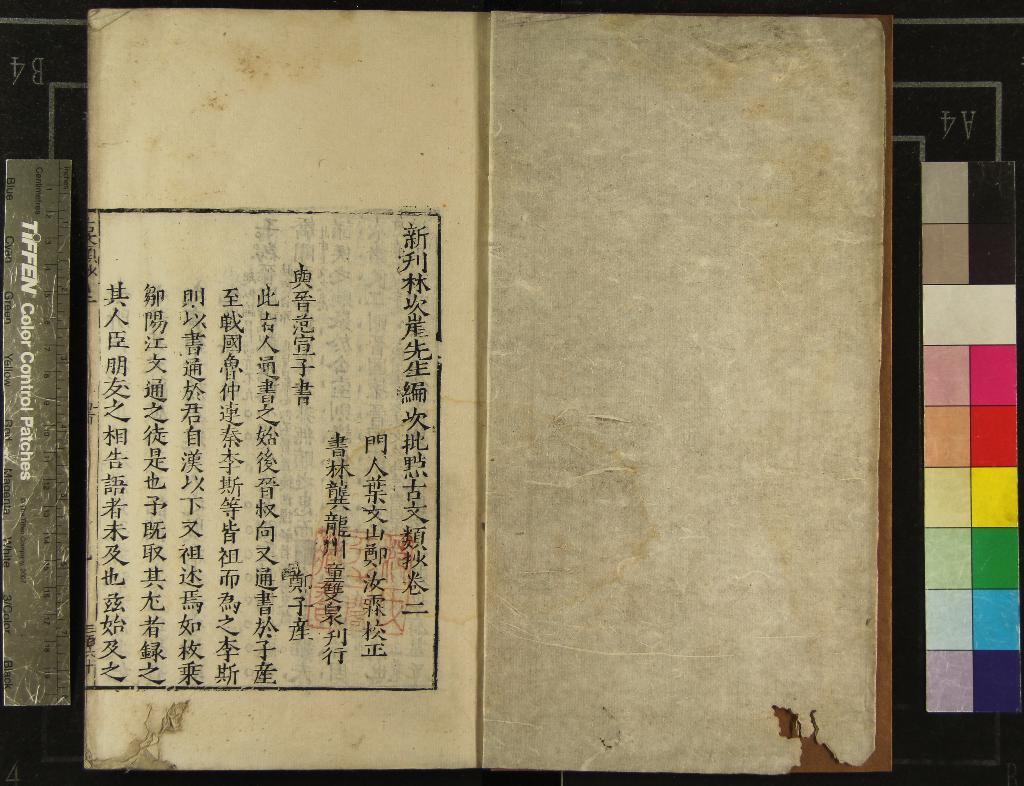 新刊林次崖先生編次批點古文類抄卷二
門人葉文山鄭汝霖校正
書林龔龍川童雙泉刊行
與晉范宣子書
鄭子產
此古人通書之始後晉叔向又通書於子產
至戰國魯仲連秦李斯等皆祖而為之李斯
則以書通於君自漢以下又祖述焉如枚乘
鄒陽江文通之徒是也予既取其尤者録之
其人臣朋友之相告語者未及也茲始及之
B4
A4
TIFFEN Color Control Patches
Inches
Centimetres
Blue
Cyan
Green
Yellow
Red
Magenta
White
3/Color
Black